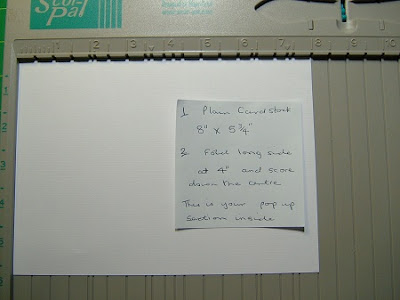 Scor-
Pal
1 2 3 4 5 6 7 8 9 10
1 Plain Cardstock
8" x 5 3/4"
2 Fold long side
at 4" and score
down the centre
This is your pop up
section inside